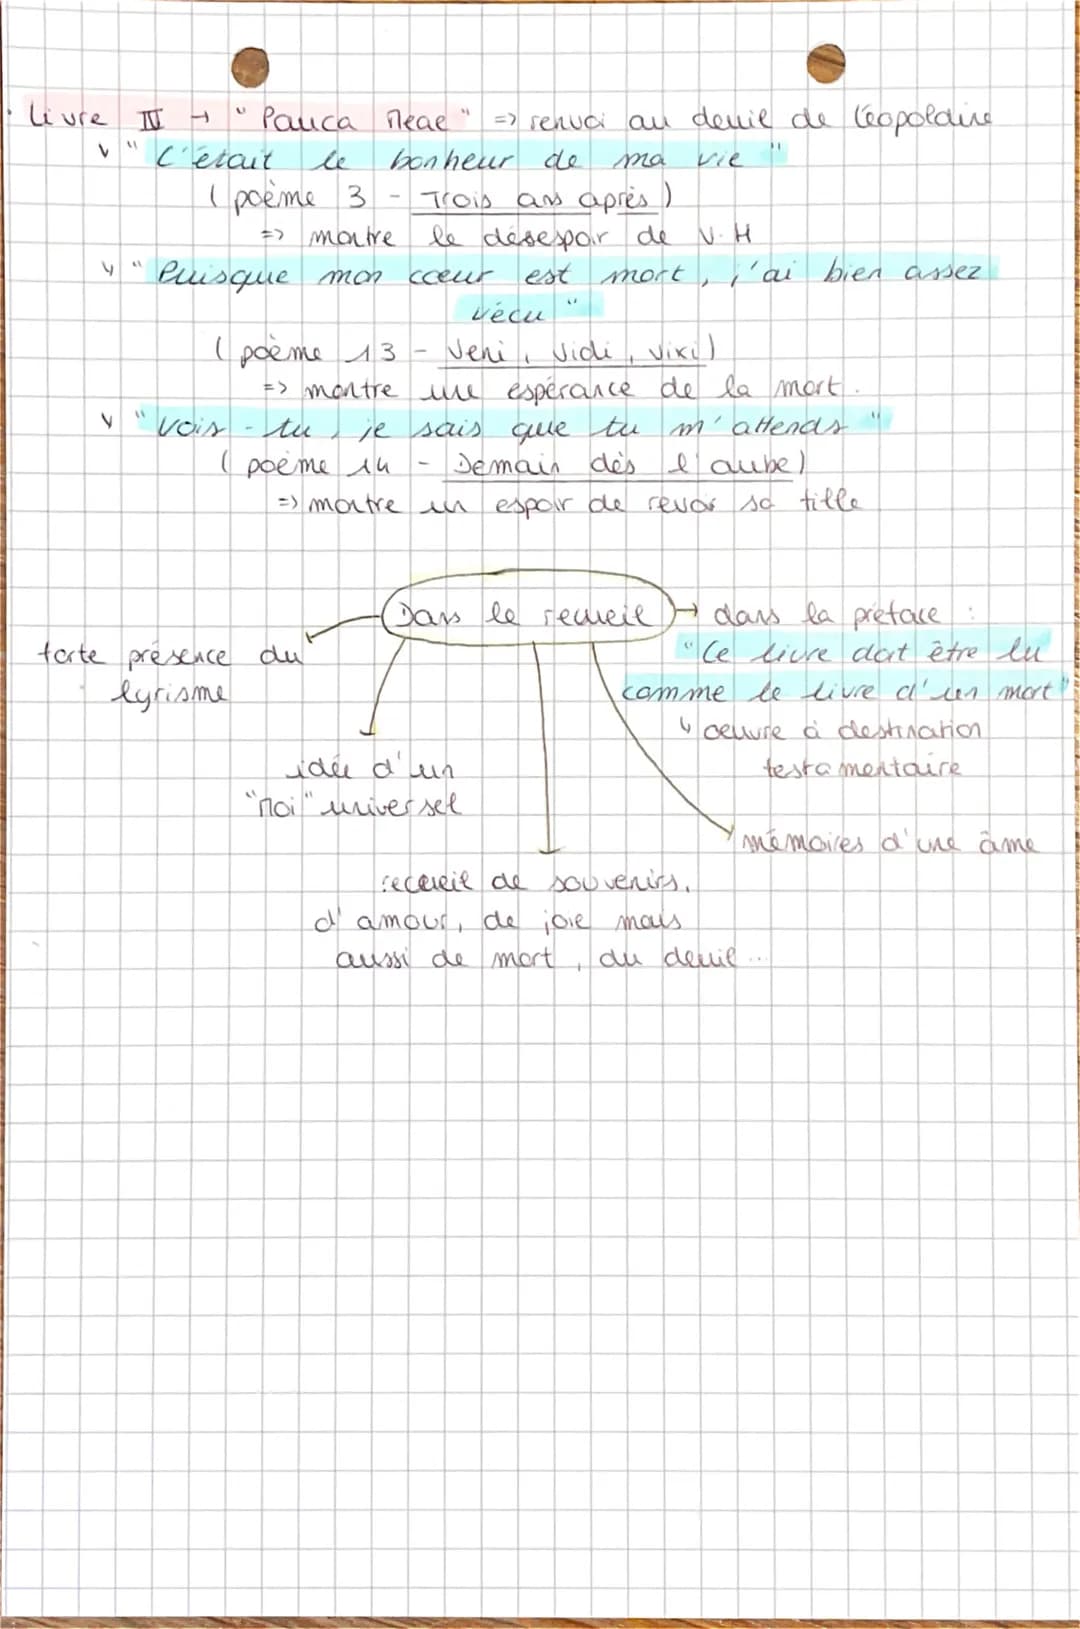 • Livre IV → "Pauca Meae" => renvoi au deuil de Léopoldine
"C'était le bonheur de ma vie"
(poème 3 - Trois ans après)
=> montre le désespoir de V.H
"Puisque mon cœur est mort, j'ai bien assez
vécu"
(poème 13 - Veni, Vidi, Vixi)
=> montre une espérance de la mort.
"Vois-tu, je sais que tu m'attends"
(poème 14 - Demain dès l'aube)
=> montre un espoir de revoir sa fille
Dans le recueil → dans la préface :
forte présence du
lyrisme
"Ce livre doit être lu
comme le livre d'un mort"
↳ œuvre à destination
testamentaire
idée d'un
"Moi" universel
mémoires d'une âme
recueil de souvenirs,
d'amour, de joie mais
aussi de mort, du deuil...